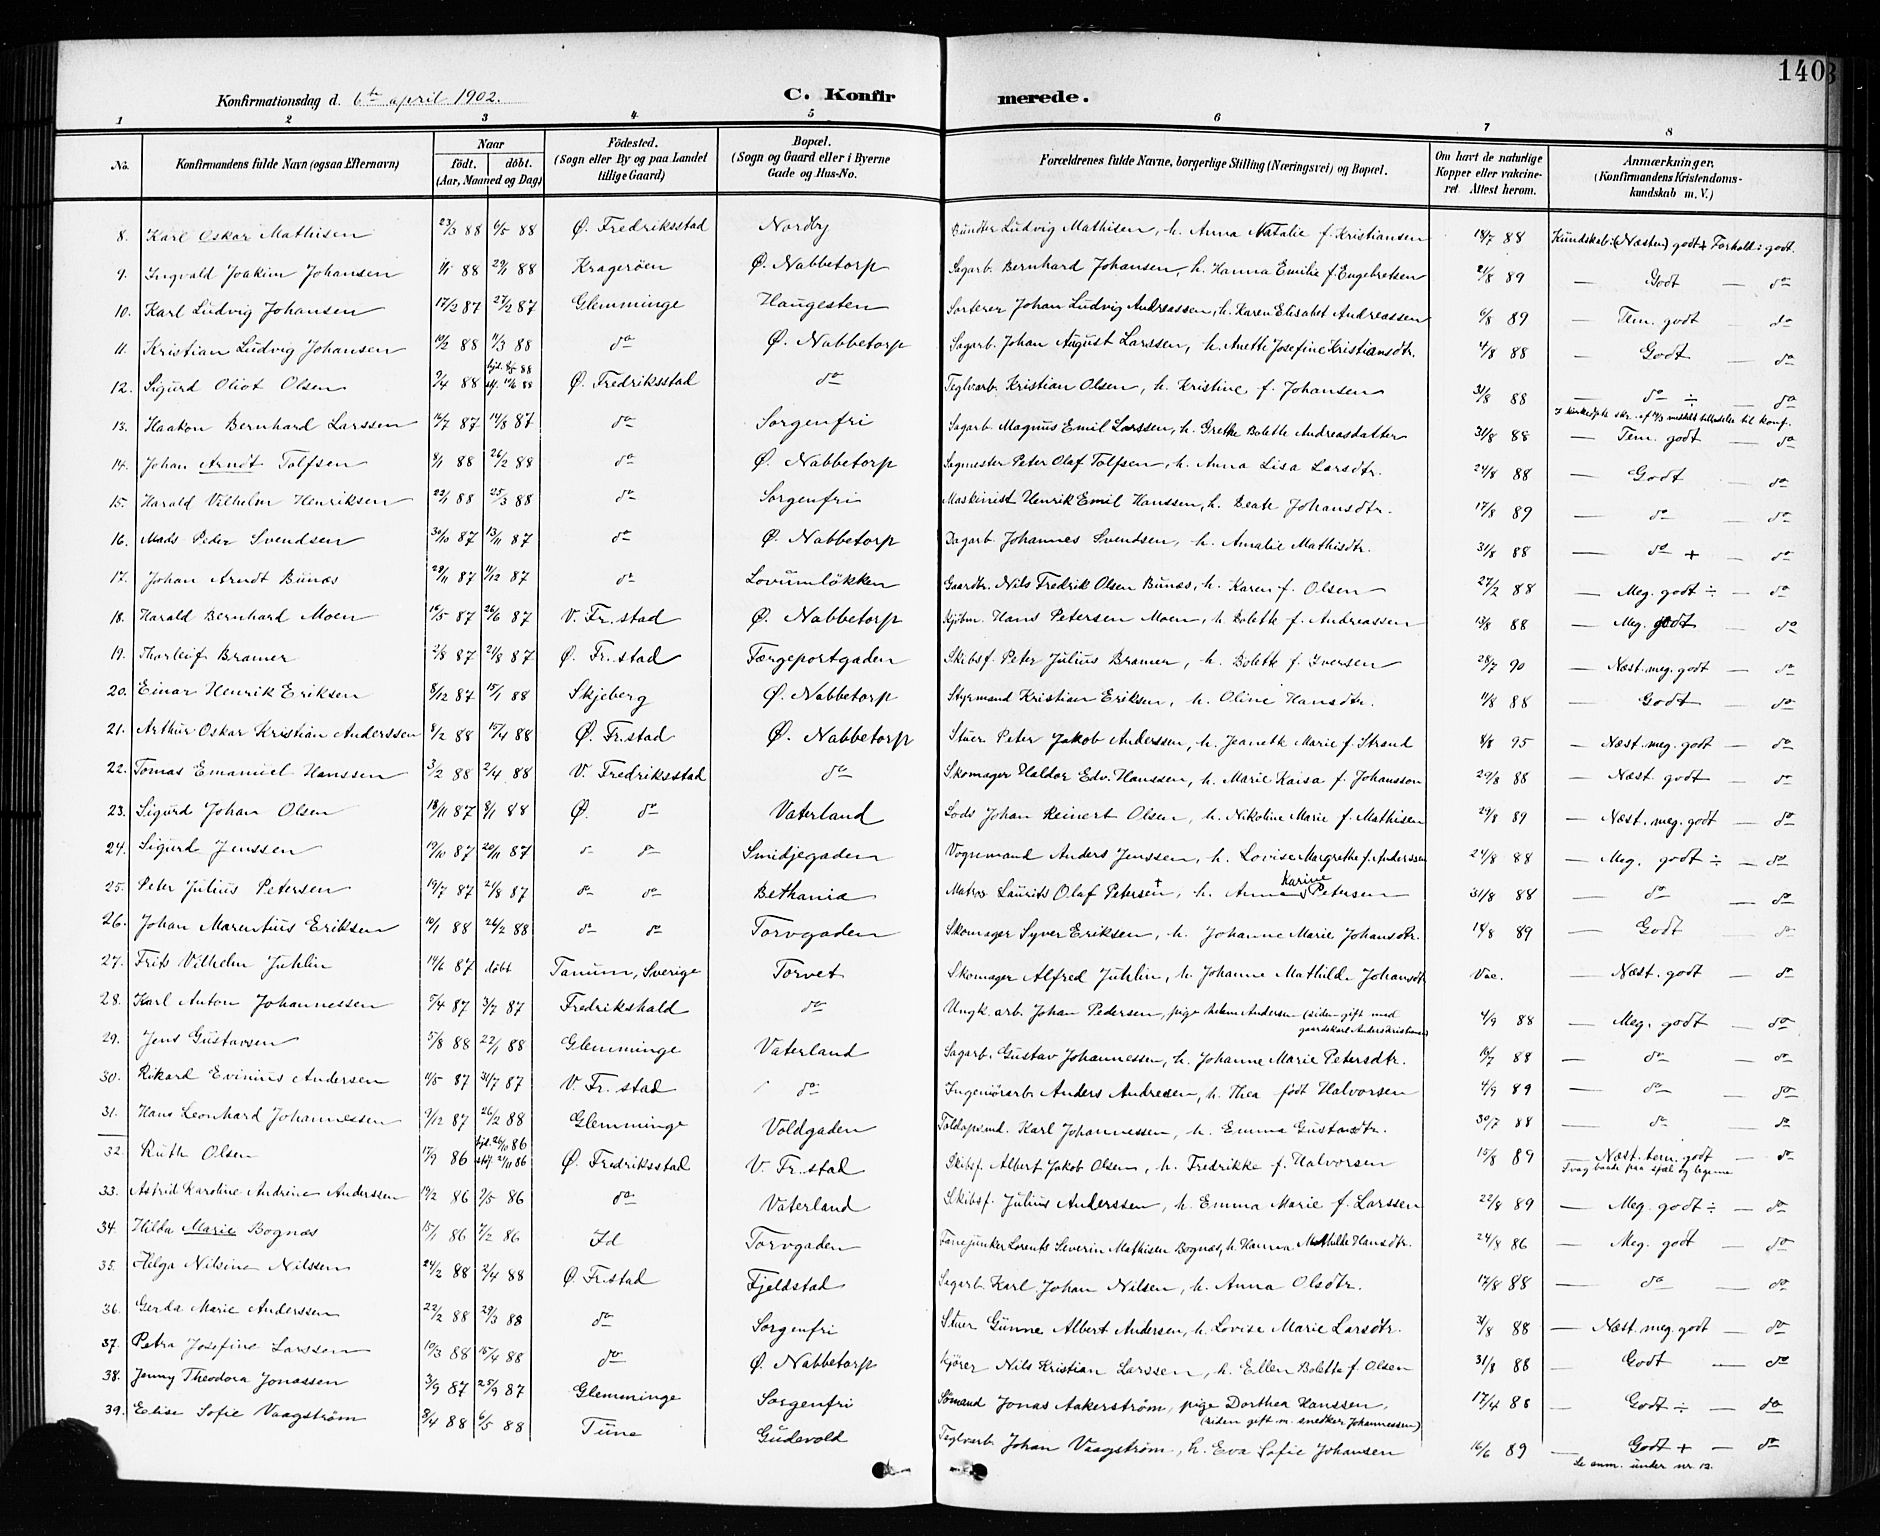 140
3
Konfirmationsdag d. 6te april 1902.
C. Konfirmerede.
1 2 3 4 5 6 7 8
No. Konfirmandens fulde Navn (ogsaa Efternavn) Naar født. døbt. (Aar, Maaned og Dag) Fødested. (Sogn eller By og paa Landet tillige Gaard) Bopæl. (Sogn og Gaard eller i Byerne Gade og Hus-No. Forældrenes fulde Navne, borgerlige Stilling (Næringsvei) og Bopæl. Om havt de naturlige Kopper eller vakcineret Attest herom. Anmærkninger. (Konfirmandens Kristendomskundskab m. V.)
8. Karl Oskar Mathisen 23/3 88 6/5 88 Ø. Fredriksstad Nordby Ludvig Mathisen, h. Anna Natalie f. Kristiansen 18/7 88 Kundskab: (Næsten) godt Forhold: godt.
9. Ingvald Joakim Johansen 1/1 88 29/1 88 Kragerøen Ø. Nabbetorp Sagarb. Bernhard Johansen, h. Hanna Emilie f. Engebretsen 21/8 89 — Godt — do
10. Karl Ludvig Johansen 17/2 87 27/2 87 Glemminge Haugesten Sorterer Johan Ludvig Andreassen, h. Karen Elisabet Andreassen 6/8 89 — Tem. godt — do
11. Kristian Ludvig Johansen 10/2 88 11/3 88 do Ø. Nabbetorp Sagarb. Johan August Larssen, h. Anette Josefine Kristiansdtr. 4/8 88 — Godt — do
12. Sigurd Oliot Olsen 9/4 88 hjd. 6/5 88 stf. 10/6 88 Ø. Fredriksstad do Teglvarb. Kristian Olsen, h. Kristine f. Johansen 31/8 88 — do ÷ — do
13. Haakon Bernhard Larssen 16/7 87 14/8 87 do Sorgenfri Sagarb. Magnus Emil Larssen, h. Grethe Bolette Andreasdatter 31/8 88 — Tem. godt — do
14. Johan Arndt Tolfsen 8/1 88 26/2 88 do Ø. Nabbetorp Sagmester Peter Olaf Tolfsen, h. Anna Lisa Larsdtr. 24/8 88 — Godt — do
15. Harald Vilhelm Henriksen 22/1 88 25/3 88 do Sorgenfri Maskinist Henrik Emil Hanssen, h. Beate Johansdtr. 17/8 89 — do — do
16. Mads Peder Svendsen 30/10 87 13/11 87 do Ø. Nabbetorp Dagarb. Johannes Svendsen, h. Amalie Mathisdtr. 31/8 88 — do + — do
17. Johan Arndt Bunæs 29/11 87 11/12 87 do Lovumløkken Gaardbr. Nils Fredrik Olsen Bunæs, h. Karen f. Olsen 27/2 88 — Meg. godt ÷ — do
18. Harald Bernhard Moen 16/5 87 26/6 87 V. Fr.stad Ø. Nabbetorp Kjöbm. Hans Petersen Moen, h. Bolette f. Andreassen 13/8 88 — Meg. godt — do
19. Thorleif Bramer 2/8 87 21/8 87 Ø. Fr.stad Færgeportgaden Skibsf. Peter Julius Bramer, h. Bolette f. Iversen 28/7 90 — Næst. meg. godt — do
20. Einar Henrik Eriksen 8/12 87 15/1 88 Skjeberg Ø. Nabbetorp Styrmand Kristian Eriksen, h. Oline Hansdtr. 11/8 88 — Godt — do
21. Arthur Oskar Kristian Anderssen 8/2 88 15/4 88 Ø. Fr.stad Ø. Nabbetorp Stuer Peter Jakob Anderssen, h. Jeanette Marie f. Strand 8/8 95 — Næst. meg. godt — do
22. Tomas Emanuel Hanssen 3/2 88 2/4 88 V. Fredriksstad do Skomager Haldor Edv. Hanssen, h. Marie Kaisa f. Johansson 29/8 88 — Næst. godt — do
23. Sigurd Johan Olsen 18/11 87 8/1 88 Ø. do Vaterland Lods Johan Reinert Olsen, h. Nikoline Marie f. Mathisen 29/8 89 — Næst. meg. godt — do
24. Sigurd Jenssen 19/10 87 20/11 87 do do Smidjegaden Vognmand Anders Jenssen, h. Lovise Margrethe f. Anderssen 24/8 88 — Meg. godt ÷ — do
25. Peter Julius Petersen 19/7 87 21/8 87 do do Bethania Matros Laurits Olaf Petersen +, h. Anna Karine Petersen 31/8 88 — do — do
26. Johan Marentius Eriksen 10/1 88 26/2 88 do do Torvgaden Skomager Syver Eriksen, h. Johanne Marie Johansdtr. 18/8 89 — Godt — do
27. Frits Vilhelm Juhlin 14/6 87 døbt Tanum, Sverige Torvet Skomager Alfred Juhlin, h. Johanne Mathilde Johansdtr Vac. — Næst. godt — do
28. Karl Anton Johannessen 5/4 87 3/7 87 Fredrikshald do Ungk. arb. Johan Pedersen, pige Helene Andersen (siden gift med gaardskarl Anders Kristiansen) 4/9 88 — Meg. godt — do
29. Jens Gustavsen 5/8 88 22/1 88 Glemminge Vaterland Sagarb. Gustav Johannessen, h. Johanne Marie Petersdtr. 16/7 88 — do — do
30. Rikard Evinius Andersen 11/5 87 31/7 87 V. Fr.stad do Ingeniörarb. Anders Andresen, h. Thea født Halvorsen 4/9 89 — do — do
31. Hans Leonhard Johannessen 9/12 87 26/2 88 Glemminge Voldgaden Toldopsmd. Karl Johannessen, h. Emma Gustavsdtr. 30/7 88 — do — do
32. Ruth Olsen 17/9 86 hjd. 26/10 86 stf. 21/11 86 Ø. Fredriksstad V. Fr.stad Skibsf. Albert Jakob Olsen, h. Fredrikke f. Halvorsen 15/8 89 — Næst. tem. godt — do
Svag baade paa sjæl og legeme
33. Astrid Karoline Andrine Anderssen 19/2 86 9/5 86 do Vaterland Skibsf. Julius Anderssen, h. Emma Marie f. Larssen 22/8 89 — Meg. godt ÷ — do
34. Hilda Marie Bognæs 15/1 86 7/2 86 Id Torvgaden Fanejunker Lorents Severin Mathisen Bognæs, h. Hanna Mathilde Hansdtr. 24/8 86 — Meg. godt — do
35. Helga Nilsine Nilssen 24/2 88 2/4 88 Ø Fr.stad Fjeldstad Sagarb. Karl Johan Nilsen, h. Anna Olsdtr. 17/8 88 — do — do
36. Gerda Marie Anderssen 22/2 88 29/3 88 do Sorgenfri Stuer Gunne Albert Andersen, h. Lovise Marie Larsdtr. 31/8 88 — Næst. meg. godt — do
37. Petra Josefine Larssen 10/3 88 15/4 88 do Ø. Nabbetorp Kjører Nils Kristian Larssen, h. Ellen Bolette f. Olsen 31/8 88 — Godt — do
38. Jenny Theodora Jonassen 3/9 87 25/9 87 Glemminge Sorgenfri Sømand Jonas Aakerstrøm, pige Dorthea Hanssen, (siden gift m. snedker Johannessen) 17/4 88 — Godt ÷ — do
39. Elise Sofie Vaagstrøm 8/4 88 6/5 88 Tune Gudevold Teglvarb. Johan Vaagstrøm, h. Eva Sofie Johansen 16/6 89 — Godt + — do
Se anm. under nr 12.